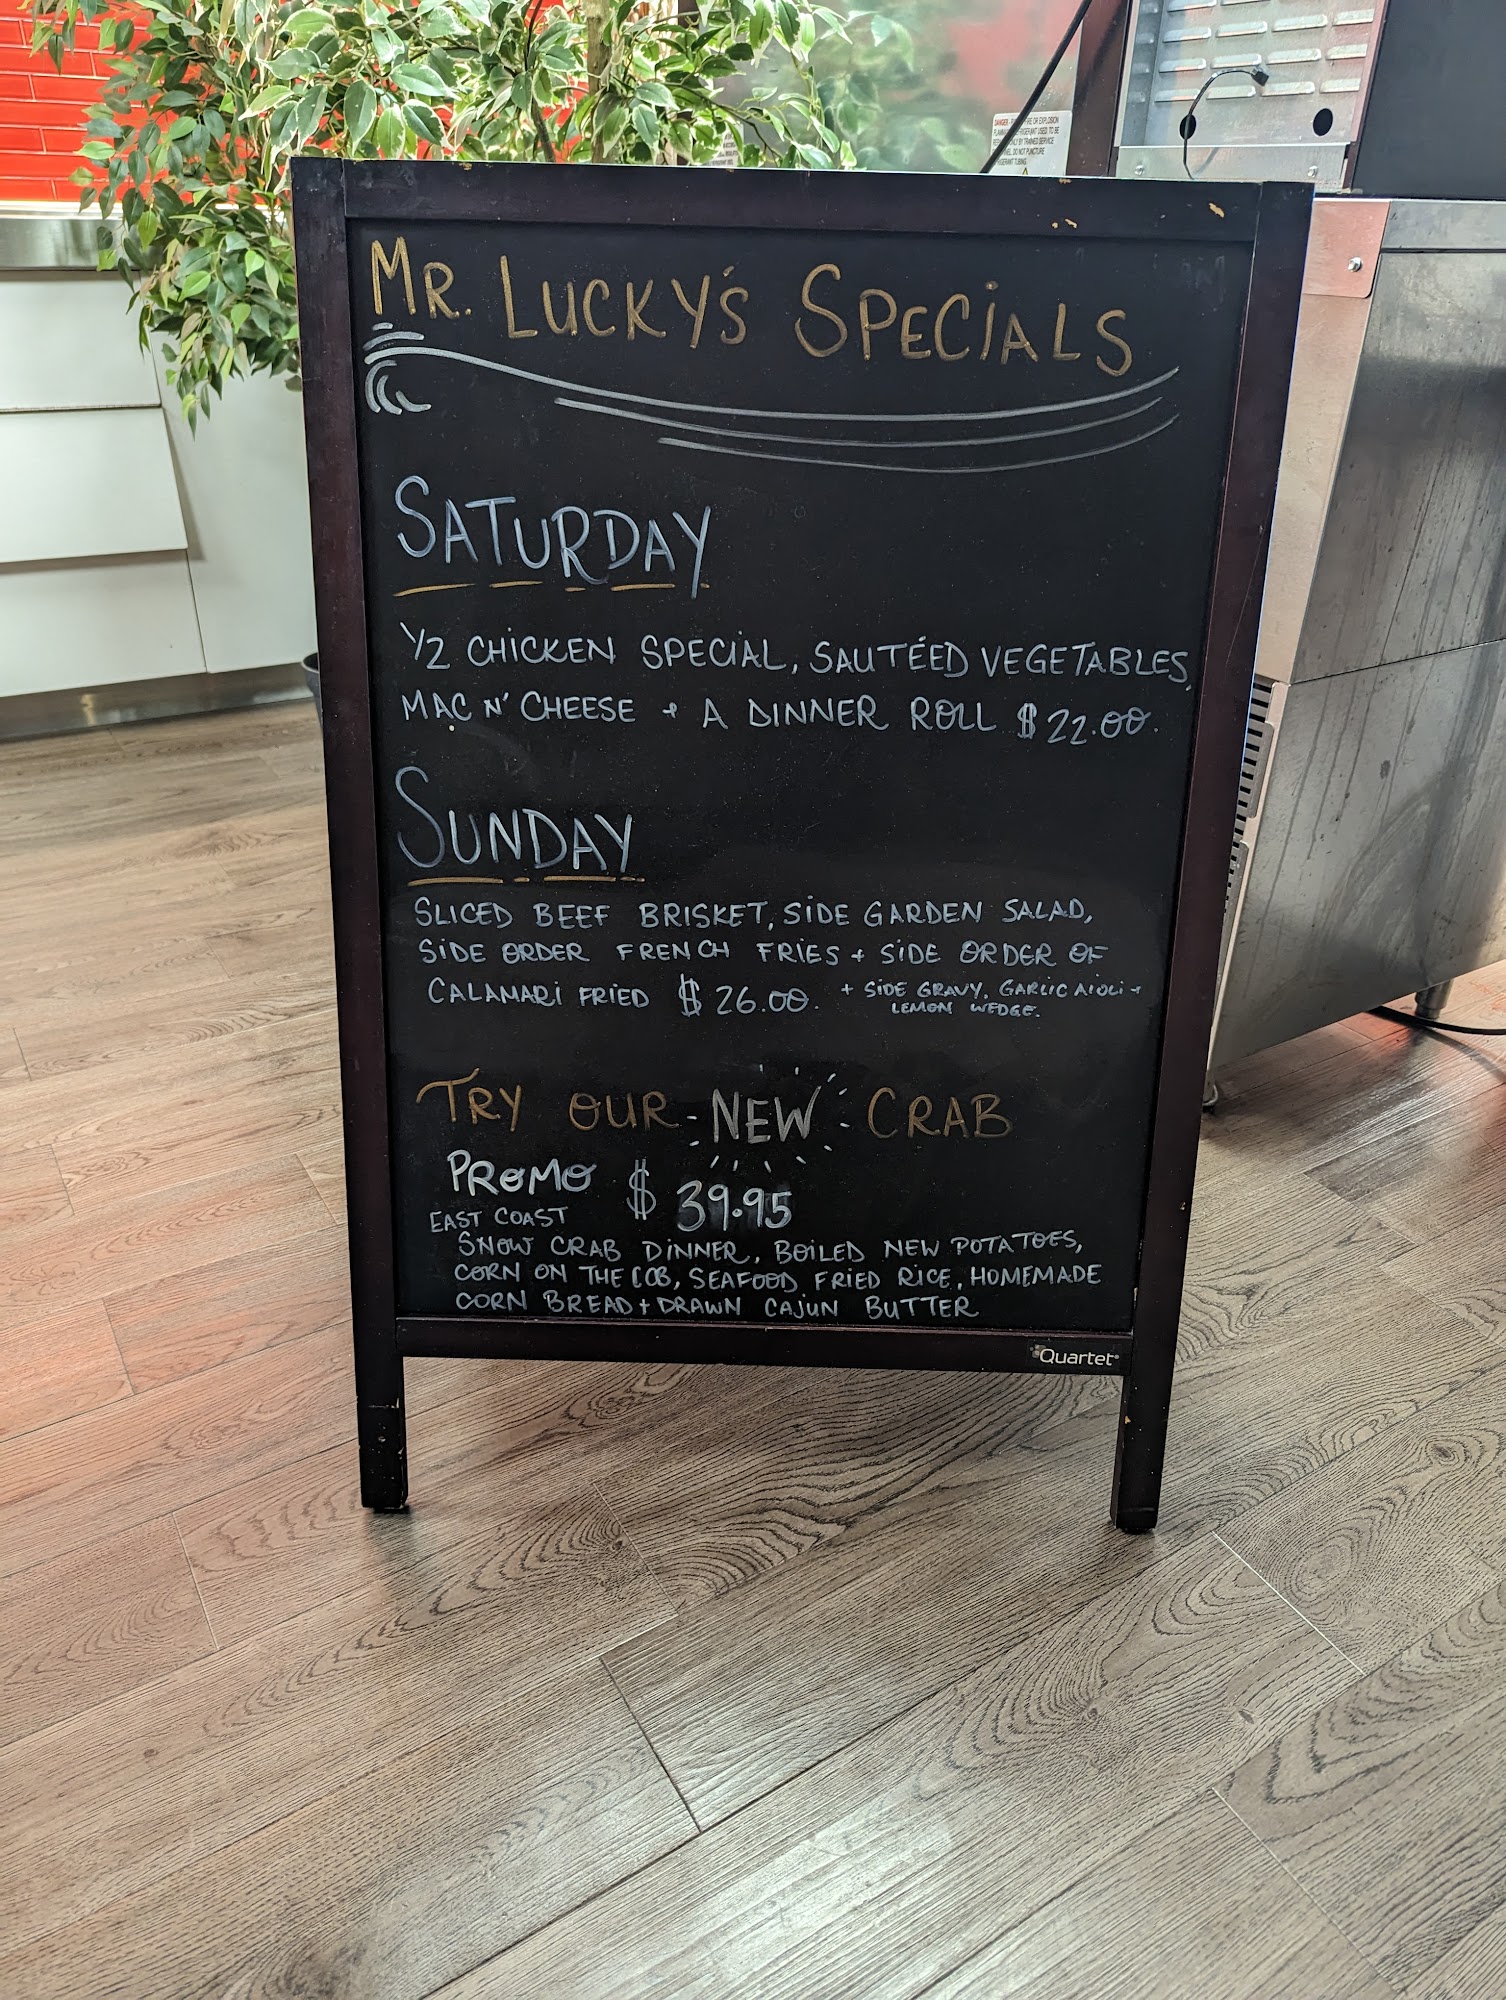 MR. LUCKY'S SPECIALS
SATURDAY
1/2 CHICKEN SPECIAL, SAUTÉED VEGETABLES,
MAC N' CHEESE + A DINNER ROLL $22.00.
SUNDAY
SLICED BEEF BRISKET, SIDE GARDEN SALAD,
SIDE ORDER FRENCH FRIES + SIDE ORDER OF
CALAMARI FRIED $26.00. + SIDE GRAVY, GARLIC AIOLI +
LEMON WEDGE.
TRY OUR NEW CRAB
PROMO $39.95
EAST COAST
SNOW CRAB DINNER, BOILED NEW POTATOES,
CORN ON THE COB, SEAFOOD FRIED RICE, HOMEMADE
CORN BREAD + DRAWN CAJUN BUTTER
Quartet